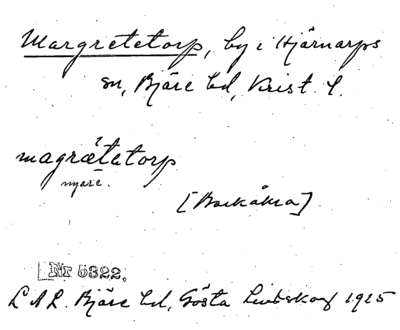 Margretetorp, by i Hjärnarps
sn, Bjäre hd, Krist. l.
magrätetorp
nyare.
[Barkåkra]
Nr 5322.
L A L. Bjäre hd, Gösta 1925